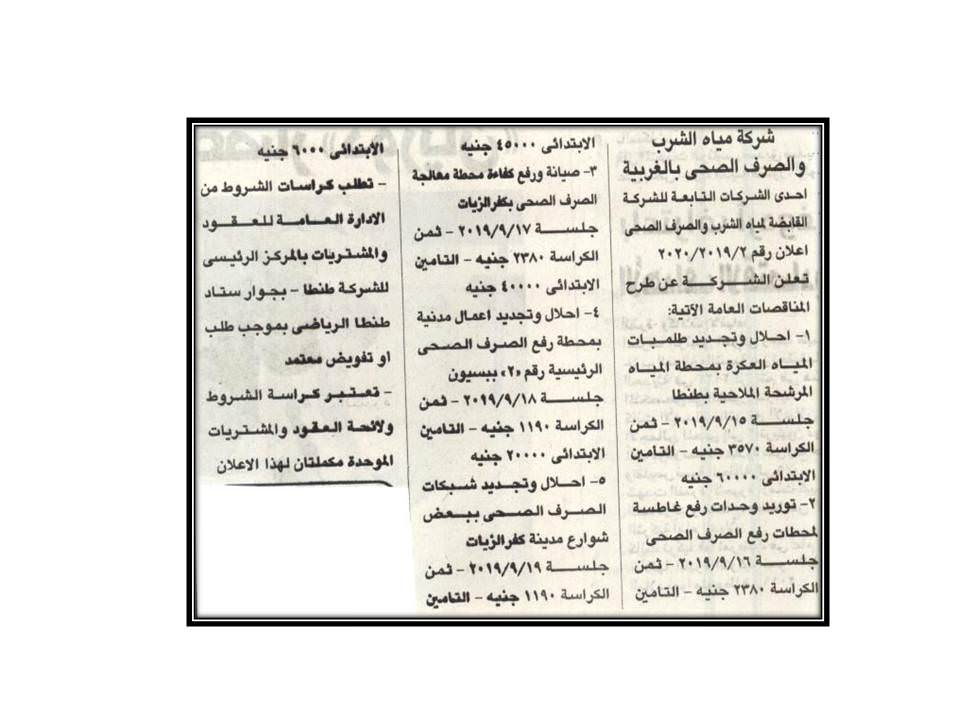 شركة مياه الشرب
والصرف الصحى بالغربية
احدى الشركات التابعة للشركة
القابضة لمياه الشرب والصرف الصحى
اعلان رقم ٢٠٢٠/٢٠١٩/٢
تعلن الشركة عن طرح
المناقصات العامة الآتية:
١- احلال وتجديد طلمبات
المياه العكرة بمحطة المياه
المرشحة الملاحية بطنطا
جلسة ٢٠١٩/٩/١٥ - ثمن
الكراسة ٣٥٧٠ جنيه - التامين
الابتدائى ٦٠٠٠٠ جنيه
٢- توريد وحدات رفع غاطسة
لمحطات رفع الصرف الصحى
جلسة ٢٠١٩/٩/١٦ - ثمن
الكراسة ٢٣٨٠ جنيه - التامين
الابتدائى ٤٥٠٠٠ جنيه
٣- صيانة ورفع كفاءة محطة معالجة
الصرف الصحى بكفرالزيات
جلسة ٢٠١٩/٩/١٧ - ثمن
الكراسة ٢٣٨٠ جنيه - التامين
الابتدائى ٤٠٠٠٠ جنيه
٤- احلال وتجديد اعمال مدنية
بمحطة رفع الصرف الصحى
الرئيسية رقم «٢» ببسيون
جلسة ٢٠١٩/٩/١٨ - ثمن
الكراسة ١١٩٠ جنيه - التامين
الابتدائى ٢٠٠٠٠ جنيه
٥- احلال وتجديد شبكات
الصرف الصحى ببعض
شوارع مدينة كفرالزيات
جلسة ٢٠١٩/٩/١٩ - ثمن
الكراسة ١١٩٠ جنيه - التامين
الابتدائى ٦٠٠٠ جنيه
- تطلب كراسات الشروط من
الادارة العامة للعقود
والمشتريات بالمركز الرئيسى
للشركة طنطا - بجوار ستاد
طنطا الرياضى بموجب طلب
او تفويض معتمد
- تعتبر كراسة الشروط
ولائحة العقود والمشتريات
الموحدة مكملتان لهذا الاعلان